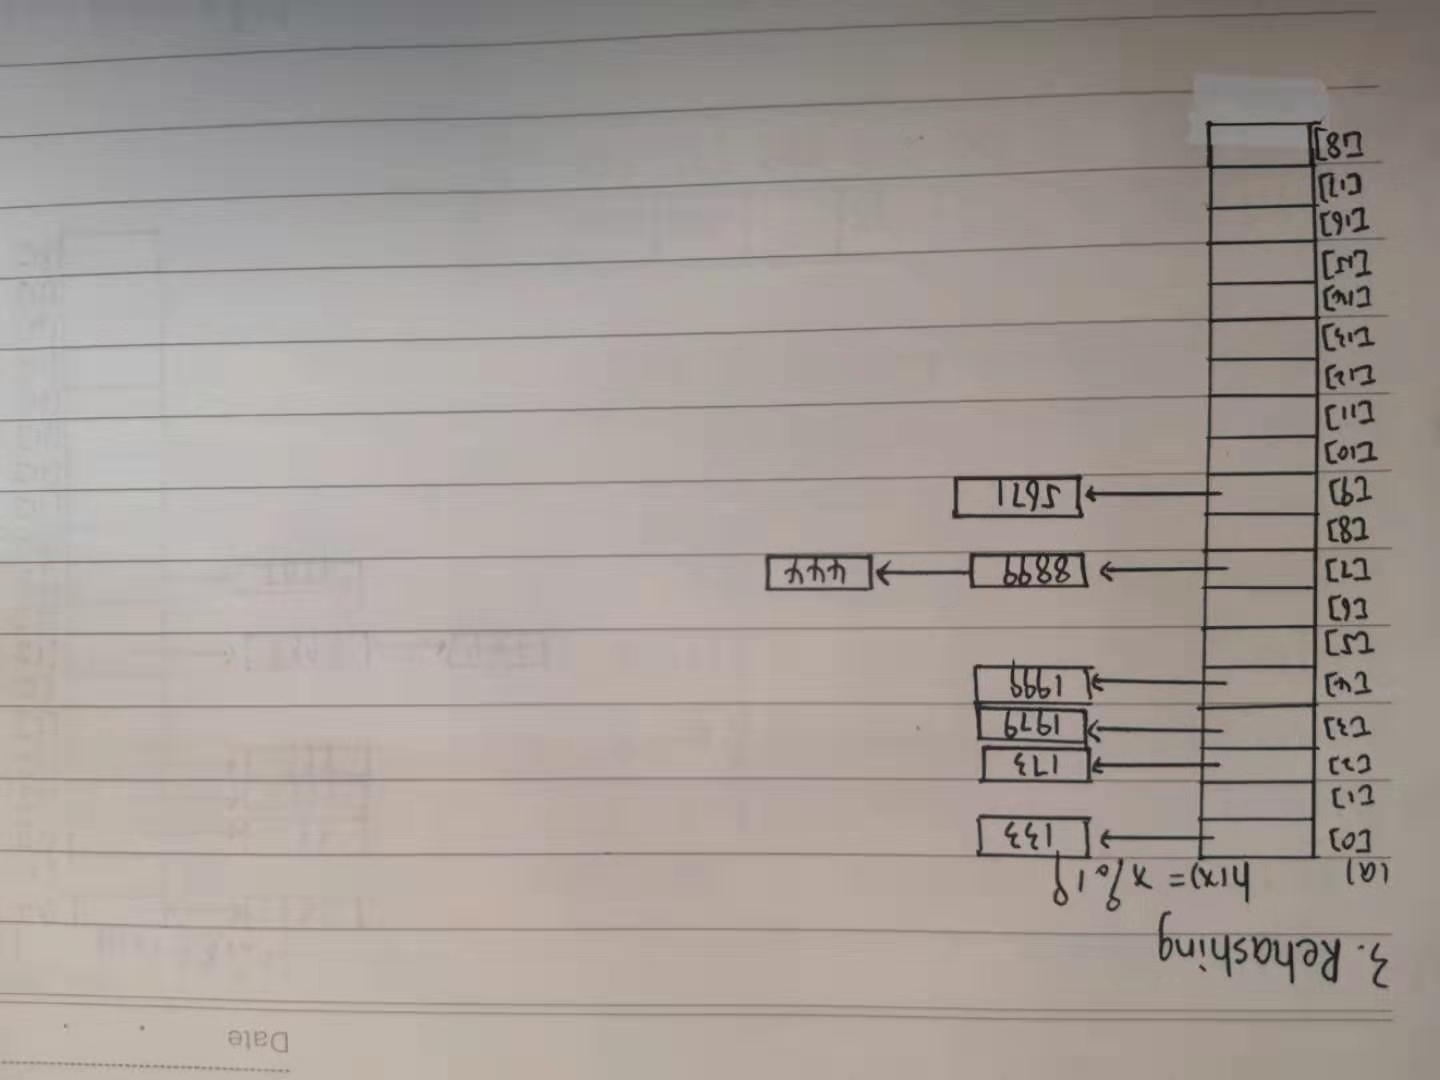 Date
3. Rehashing
(a) h(x) = x % 19
[0] 133
[1]
[2] 173
[3] 1979
[4] 1999
[5]
[6]
[7] 8899 444
[8]
[9] 5671
[10]
[11]
[12]
[13]
[14]
[15]
[16]
[17]
[18]